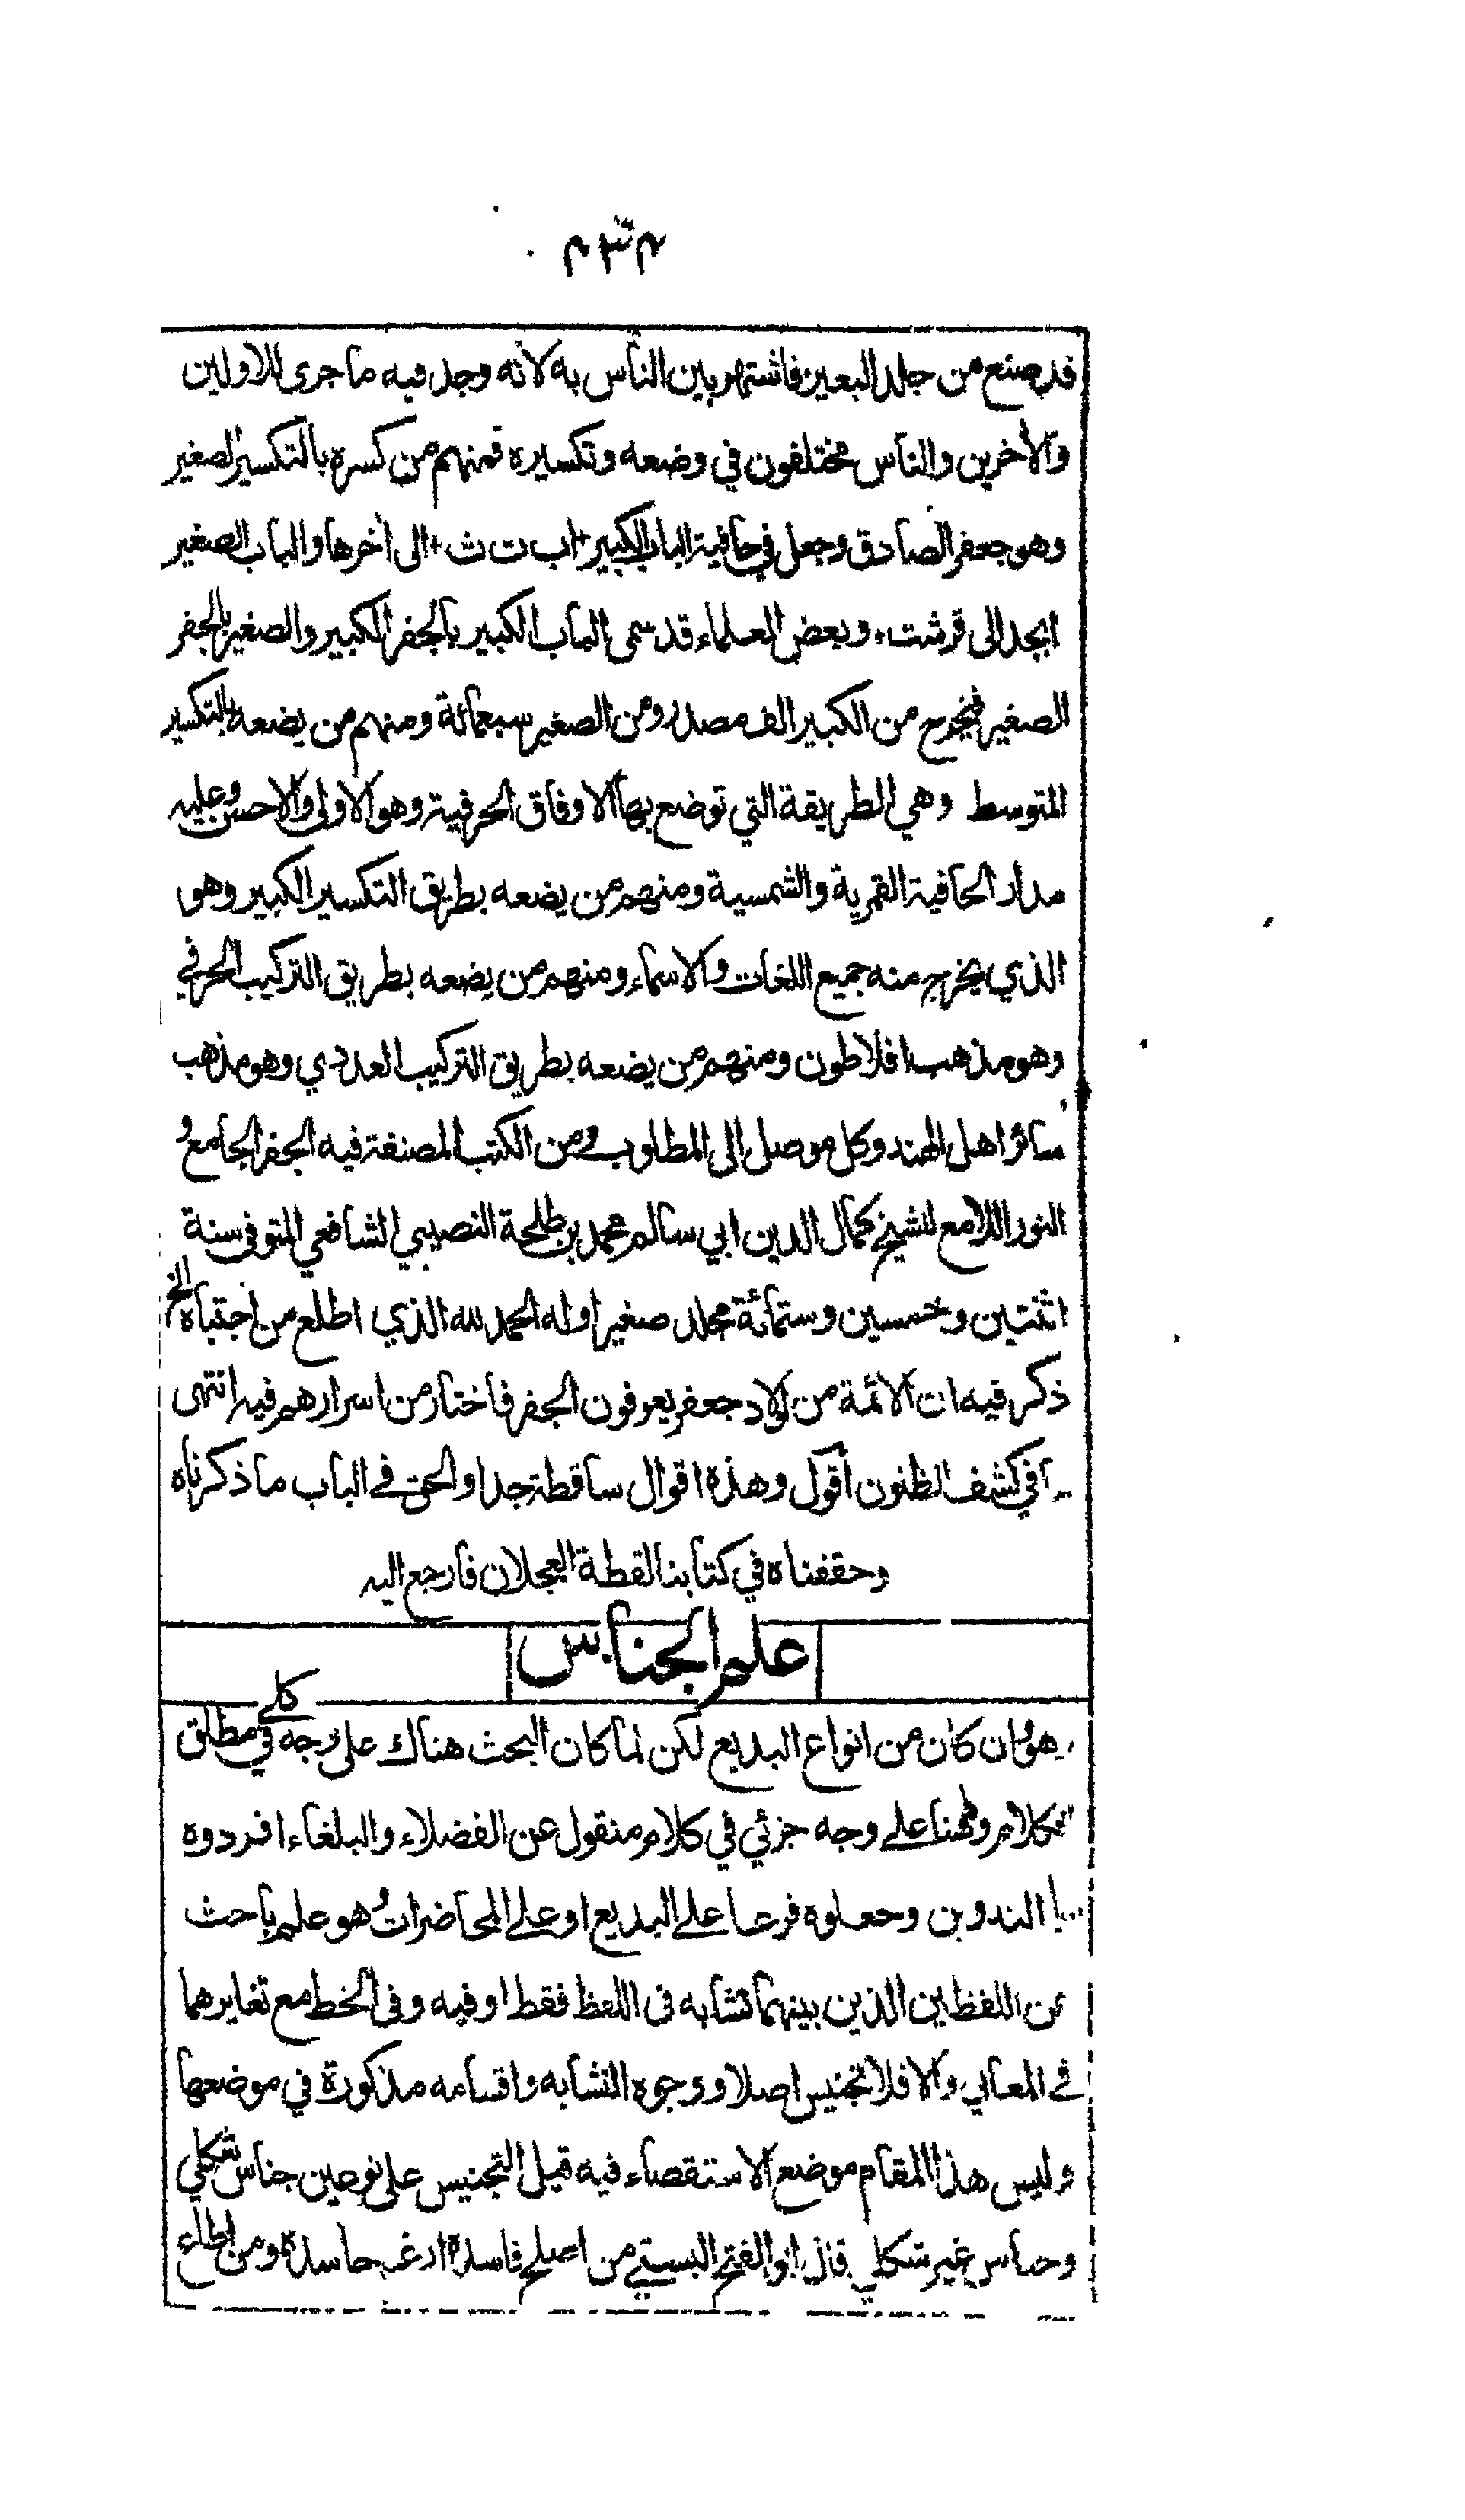 ٤٣٤
قد صنع من جلد البعير فاشتهر بين الناس به لأنه وجد فيه ما جرى للاولين
والآخرين والناس مختلفون في وضعه وتكسيره فمنهم من كسره بالتكسير الصغير
وهو جعفر الصادق وجعل في حافية الباب الكبير + اب ت ث + الى أخرها والباب الصغير
ابجد الى قرشت ٠ وبعض العلماء قد سمى الباب الكبير بالجفر الكبير والصغير بالجفر
الصغير فيخرج من الكبير الف مصدر ومن الصغير سبعمائة ومنهم من يضعه بالتكسير
المتوسط وهي الطريقة التي توضع بها الاوفاق الحرفية وهو الاولى والاحسن وعليه
مدار الحافية القمرية والشمسية ومنهم من يضعه بطريق التكسير الكبير وهو
الذي يخرج منه جميع اللغات والاسماء ومنهم من يضعه بطريق التركيب الحرفي
وهو مذهب افلاطون ومنهم من يضعه بطريق التركيب العددي وهو مذهب
سائر اهل الهند وكل موصل الى المطلوب ومن الكتب المصنفة فيه الجفر الجامع و
النور اللامع للشيخ كمال الدين ابي سالم محمد بن طلحة النصيبي الشافعي المتوفى سنة
اثنتين وخمسين وستمائة مجلد صغير اوله الحمد لله الذي اطلع من اجتباه الخ
ذكر فيه ان الائمة من اولاد جعفر يعرفون الجفر فاختار من اسرارهم فيه انتهى
ما في كشف الظنون أقول وهذه اقوال ساقطة جدا والحق في الباب ما ذكرناه
وحققناه في كتابنا لقطة العجلان فارجع اليه
علم الجناس
هو وان كان من انواع البديع لكن لما كان البحث هناك على وجه كلي في مطلق
الكلام وههنا على وجه جزئي في كلام منقول عن الفضلاء والبلغاء افردوه
بالتدوين وجعلوه فرعا على البديع او على المحاضرات وهو علم باحث
عن اللفظين الذين بينهما تشابه في اللفظ فقط او فيه وفي الخط مع تغايرهما
في المعاني والا فلا تجنيس اصلا ووجوه التشابه واقسامه مذكورة في موضعها
وليس هذا المقام موضع الاستقصاء فيه قيل التجنيس على نوعين جناس شكلي
وجناس غير شكلي قال ابو الفتح البستي من اصلح فاسده ارغم حاسده ومن اطاع